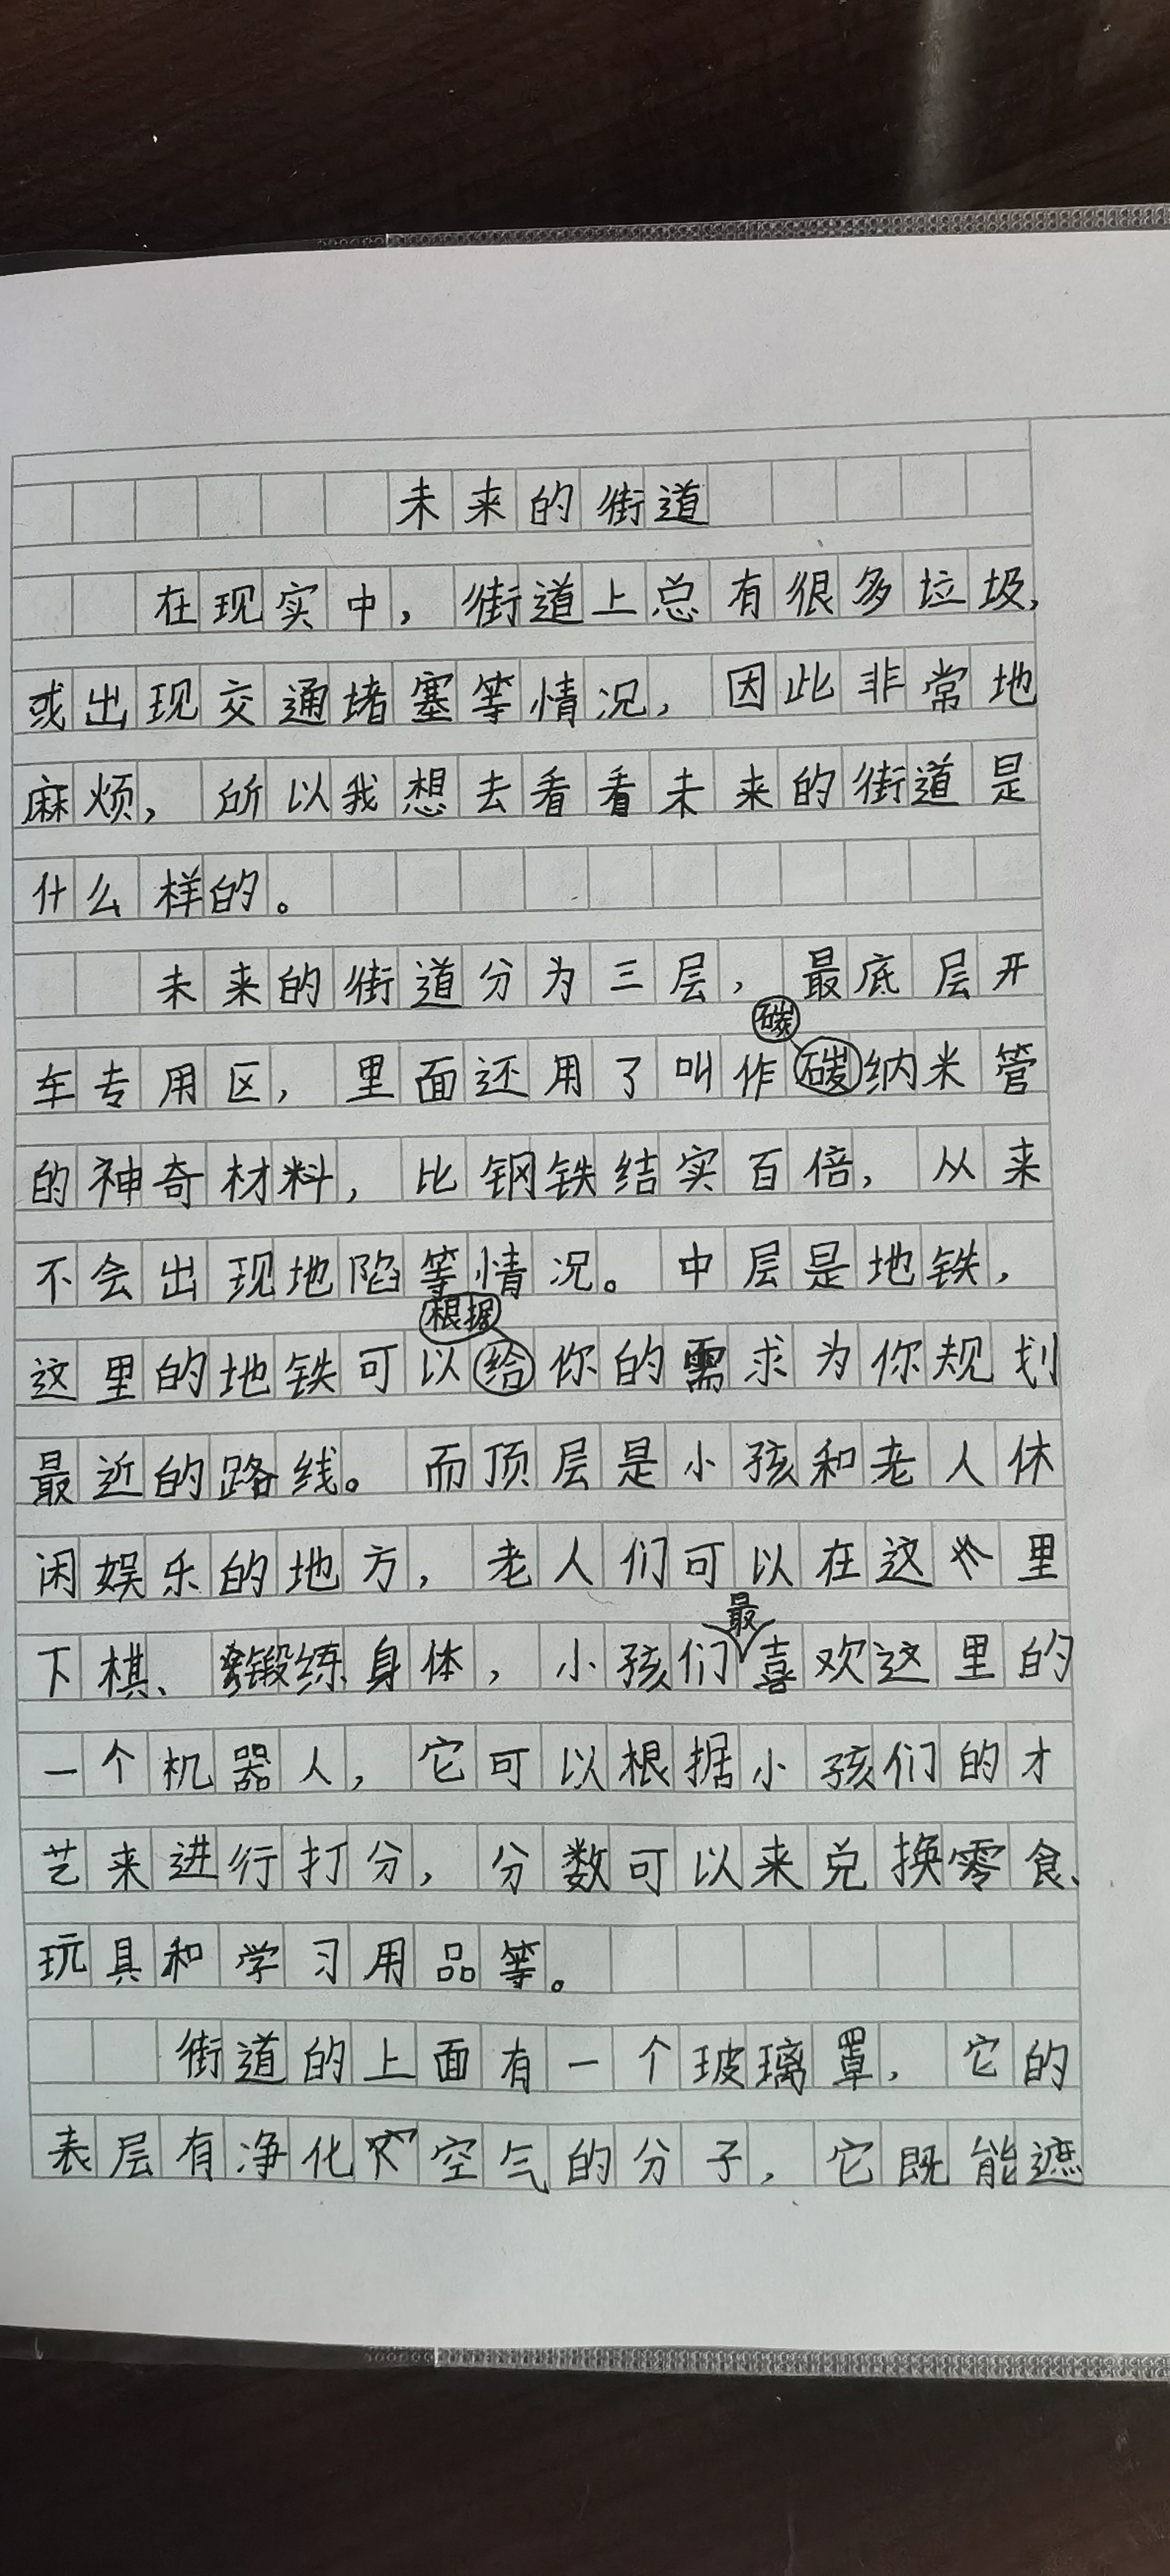 未来的街道
在现实中，街道上总有很多垃圾，
或出现交通堵塞等情况，因此非常地
麻烦，所以我想去看看未来的街道是
什么样的。
未来的街道分为三层，最底层开
碳
车专用区，里面还用了叫作碳纳米管
的神奇材料，比钢铁结实百倍，从来
不会出现地陷等情况。中层是地铁，
根据
这里的地铁可以给你的需求为你规划
最近的路线。而顶层是小孩和老人休
闲娱乐的地方，老人们可以在这里
最
下棋、锻练身体，小孩们喜欢这里的
一个机器人，它可以根据小孩们的才
艺来进行打分，分数可以来兑换零食、
玩具和学习用品等。
街道的上面有一个玻璃罩，它的
表层有净化空气的分子，它既能遮